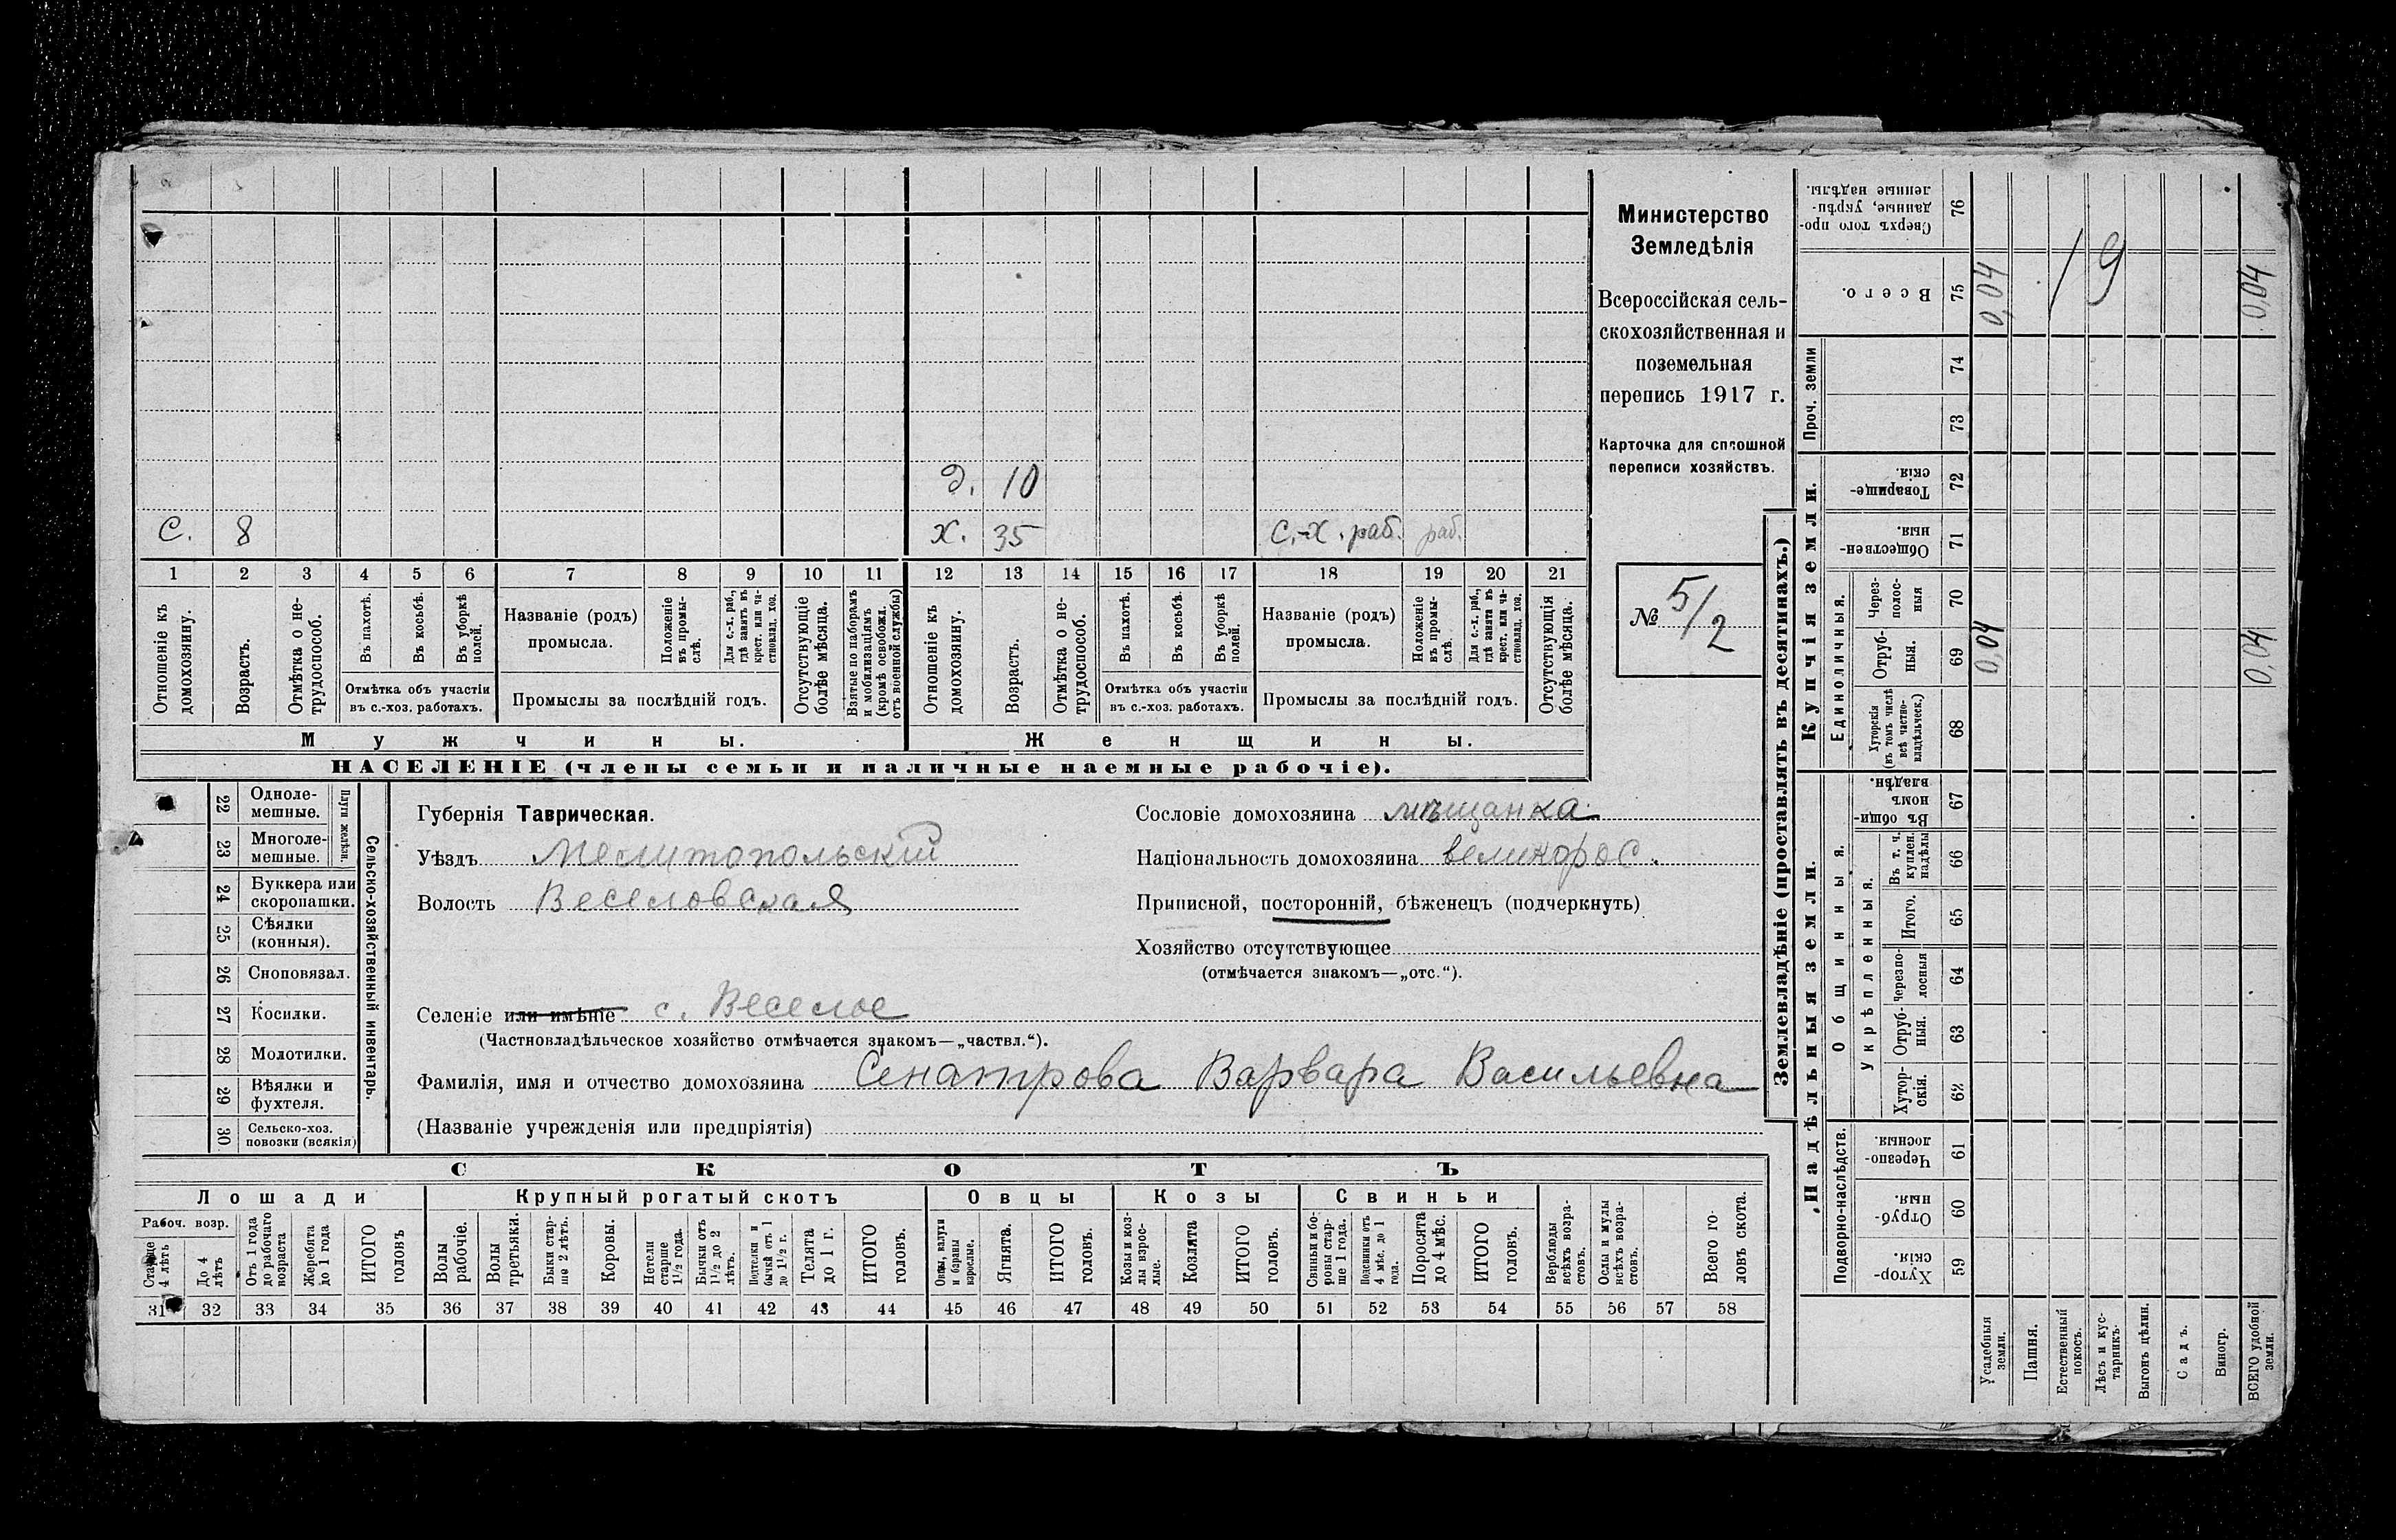 д. 10
С. 8 х. 35 С.-х. раб. раб.
1 2 3 4 5 6 7 8 9 10 11 12 13 14 15 16 17 18 19 20 21
Отношеніе къ домохозяину.
Возрастъ.
Отмѣтка о не-трудоспособ.
Въ пахотѣ.
Въ косьбѣ.
Въ уборкѣ полей.
Отмѣтка объ участіи
въ с.-хоз. работахъ.
Названіе (родъ)
промысла.
Положеніе въ промы-слѣ.
Для с.-х. раб., гдѣ занятъ въ крест. или ча-стновлад. хоз.
Промыслы за послѣдній годъ.
Отсутствующіе болѣе мѣсяца.
Взятые по наборамъ и мобилизаціямъ (кромѣ освобожд. отъ военной службы)
Отношеніе къ домохозяину.
Возрастъ.
Отмѣтка о не-трудоспособ.
Въ пахотѣ.
Въ косьбѣ.
Въ уборкѣ полей.
Отмѣтка объ участіи
въ с.-хоз. работахъ.
Названіе (родъ)
промысла.
Положеніе въ промы-слѣ.
Для с.-х. раб., гдѣ занята въ крест. или ча-стновлад. хоз.
Промыслы за послѣдній годъ.
Отсутствующія болѣе мѣсяца.
Мужчины. Женщины.
НАСЕЛЕНІЕ (члены семьи и наличные наемные рабочіе).
Министерство
Земледѣлія
Всероссійская сель-
скохозяйственная и
поземельная
перепись 1917 г.
Карточка для сплошной
переписи хозяйствъ.
№ 5/2
22 Одноле-мешные.
23 Многоле-мешные.
Плуги желѣзн.
24 Буккера или скоропашки.
25 Сѣялки (конныя).
26 Сноповязал.
27 Косилки.
28 Молотилки.
29 Вѣялки и фухтеля.
30 Сельско-хоз. повозки (всякія)
Сельско-хозяйственный инвентарь.
Губернія Таврическая.
Уѣздъ Мелитопольскій
Волость Веселовская
Сословіе домохозяина мѣщанка
Національность домохозяина великорос.
Приписной, посторонній, бѣженецъ (подчеркнуть)
Хозяйство отсутствующее
(отмѣчается знакомъ—„отс.“).
Селеніе или имѣніе с. Веселое
(Частновладѣльческое хозяйство отмѣчается знакомъ—„частвл.“).
Фамилія, имя и отчество домохозяина Сенатрова Варвара Васильевна
(Названіе учрежденія или предпріятія)
СКОТЪ
Лошади Крупный рогатый скотъ Овцы Козы Свиньи
Рабоч. возр.
Старше 4 лѣтъ
До 4 лѣтъ
Отъ 1 года до рабочаго возраста
Жеребята до 1 года
ИТОГО головъ
Волы рабочіе.
Волы третьяки.
Быки стар-ше 2 лѣтъ.
Коровы.
Нетели старше 1½ года.
Бычки отъ 1½ до 2 лѣтъ.
Подтелки и бычки отъ 1 до 1½ г.
Телята до 1 г.
ИТОГО головъ.
Овцы, валухи и бараны взрослые.
Ягнята.
ИТОГО головъ.
Козы и коз-лы взрос-лые.
Козлята
ИТОГО головъ.
Свиньи и бо-ровы стар-ше 1 года.
Подсвинки отъ 4 мѣс. до 1 года.
Поросята до 4 мѣс.
ИТОГО головъ.
Верблюды всѣхъ возра-стовъ.
Ослы и мулы всѣхъ возра-стовъ.
Всего го-ловъ скота.
31 32 33 34 35 36 37 38 39 40 41 42 43 44 45 46 47 48 49 50 51 52 53 54 55 56 57 58
Землевладѣніе (проставлять въ десятинахъ.)
Надѣльныя земли.
Купчія земли.
Проч. земли
Подворно-наслѣдств.
Общинныя.
Укрѣпленныя.
Единоличныя.
Хутор-скія. 59
Отруб-ныя. 60
Черезпо-лосныя. 61
Хутор-скія. 62
Отруб-ныя. 63
Черезпо-лосныя 64
Итого. 65
Въ т. ч. куплен. надѣлы 66
Въ общи-номъ владѣн. 67
Хуторскія (въ томъ числѣ всѣ частно-владѣльческ.) 68
Отруб-ныя. 69
Через-полос-ныя 70
Обществен-ныя. 71
Товарище-скія. 72
73
74
Всего. 75
Сверхъ того про-данные, укрѣп-ленные надѣлы. 76
Усадебныя земли. 0,04 0,04
Пашня.
Естественный покосъ.
Лѣсъ и кус-тарникъ.
Выгонъ цѣлин.
Садъ.
Виногр.
ВСЕГО удобной земли. 0,04 0,04
19